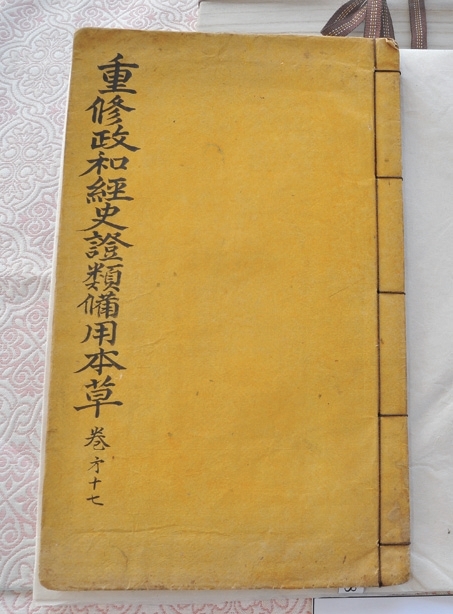 重修政和經史證類備用本草 卷才十七